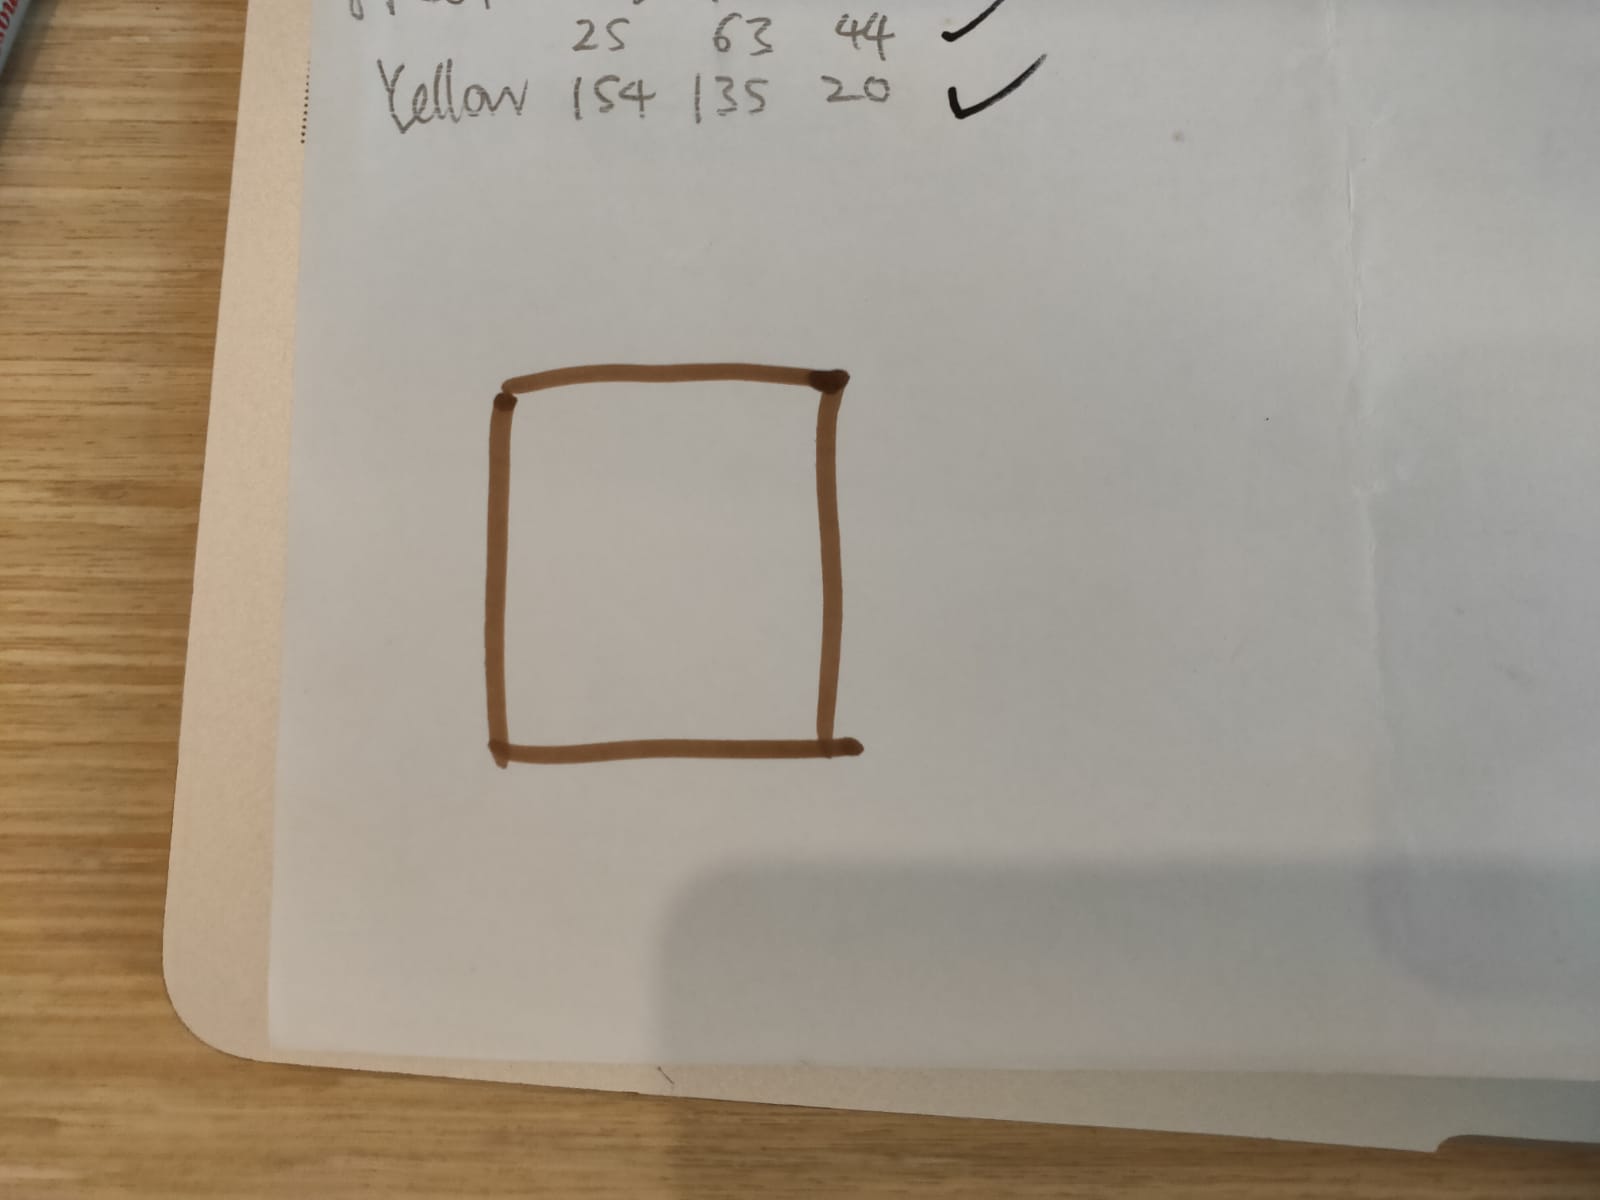 25 63 44
Yellow 154 135 20